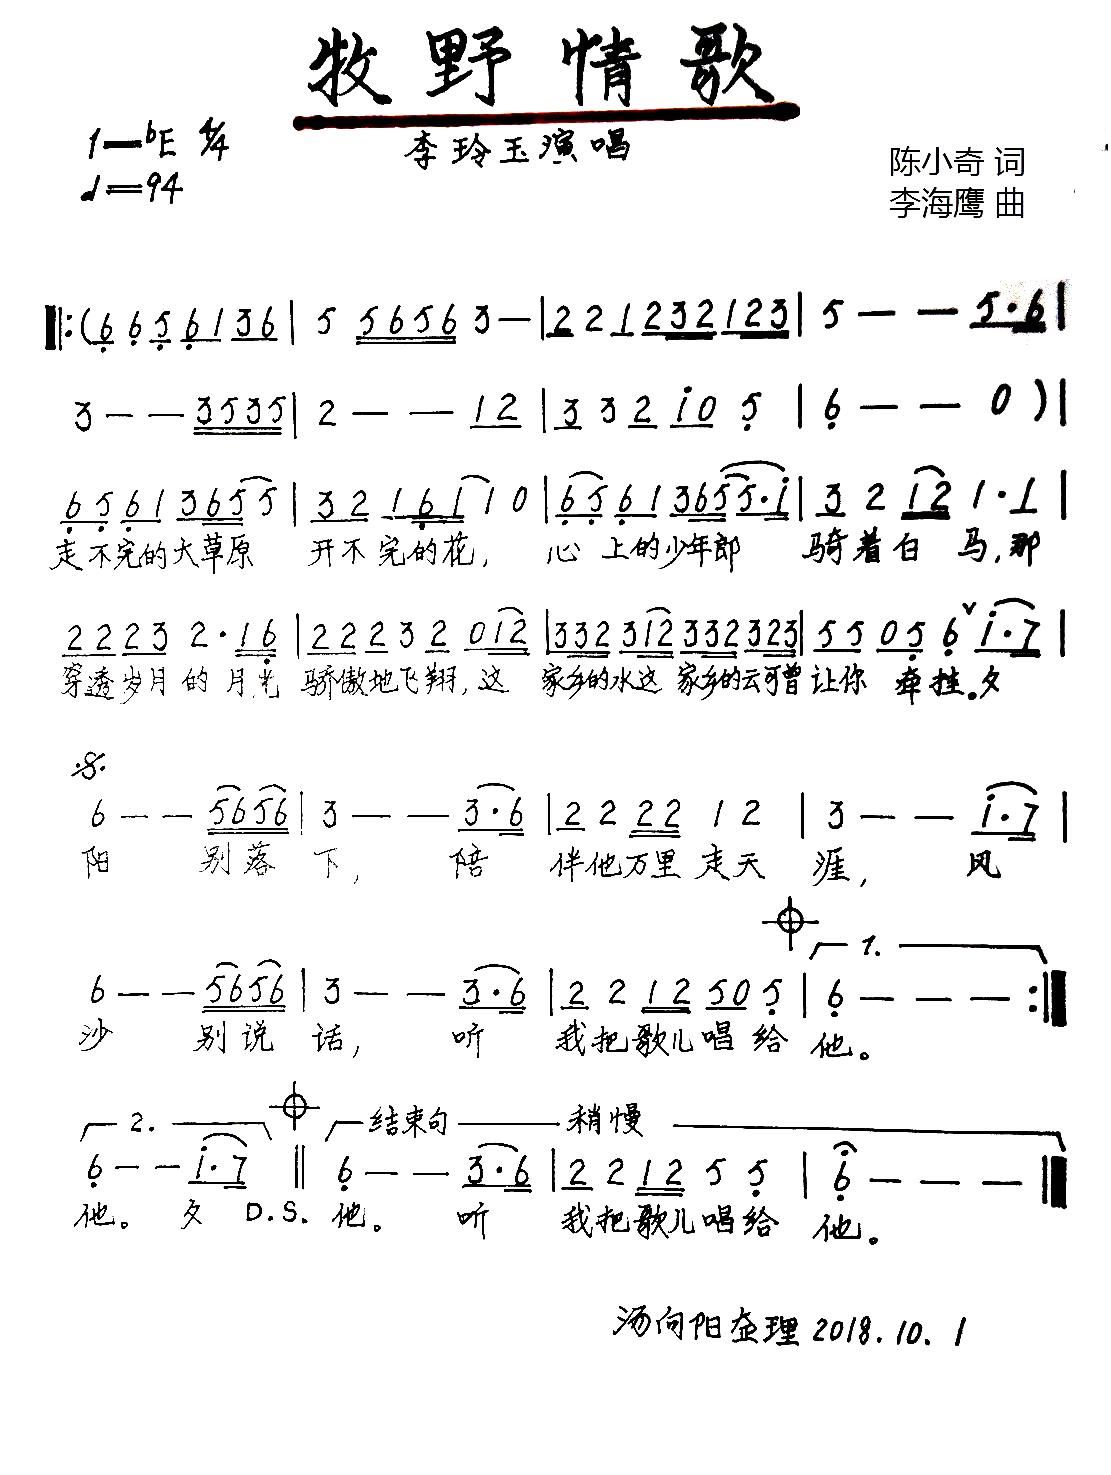 牧野情歌
1=bE 4/4
李玲玉演唱
♩=94
陈小奇 词
李海鹰 曲
‖:(6 6 5 6 1 3 6 | 5 5 6 5 6 3 — | 2 2 1 2 3 2 1 2 3 | 5 — — 5·6 |
3 — — 3 5 3 5 | 2 — — 1 2 | 3 3 2 i 0 5 | 6 — — 0 ) |
6 5 6 1 3 6 5 5 | 3 2 1 6 1 1 0 | 6 5 6 1 3 6 5 5·i | 3 2 1 2 1·1 |
走不完的大草原 开不完的花, 心上的少年郎 骑着白马,那
2 2 2 3 2·1 6 | 2 2 2 3 2 0 1 2 | 3 3 2 3 1 2 3 3 2 3 2 3 | 5 5 0 5 6 ∨ i·7 |
穿透岁月的月光 骄傲地飞翔,这 家乡的水这 家乡的云可曾让你 牵挂。夕
𝄋
6 — — 5 6 5 6 | 3 — — 3·6 | 2 2 2 2 1 2 | 3 — — i·7 |
阳 别落下, 陪伴他万里走天涯, 风
1.
6 — — 5 6 5 6 | 3 — — 3·6 | 2 2 1 2 5 0 5 | 6 — — — :‖
沙 别说话, 听我把歌儿唱给他。
2. 结束句 稍慢
6 — — i·7 ‖ 6 — — 3·6 | 2 2 1 2 5 5 | 6 — — — ‖
他。夕 D.S. 他。 听我把歌儿唱给他。
汤向阳整理 2018.10.1